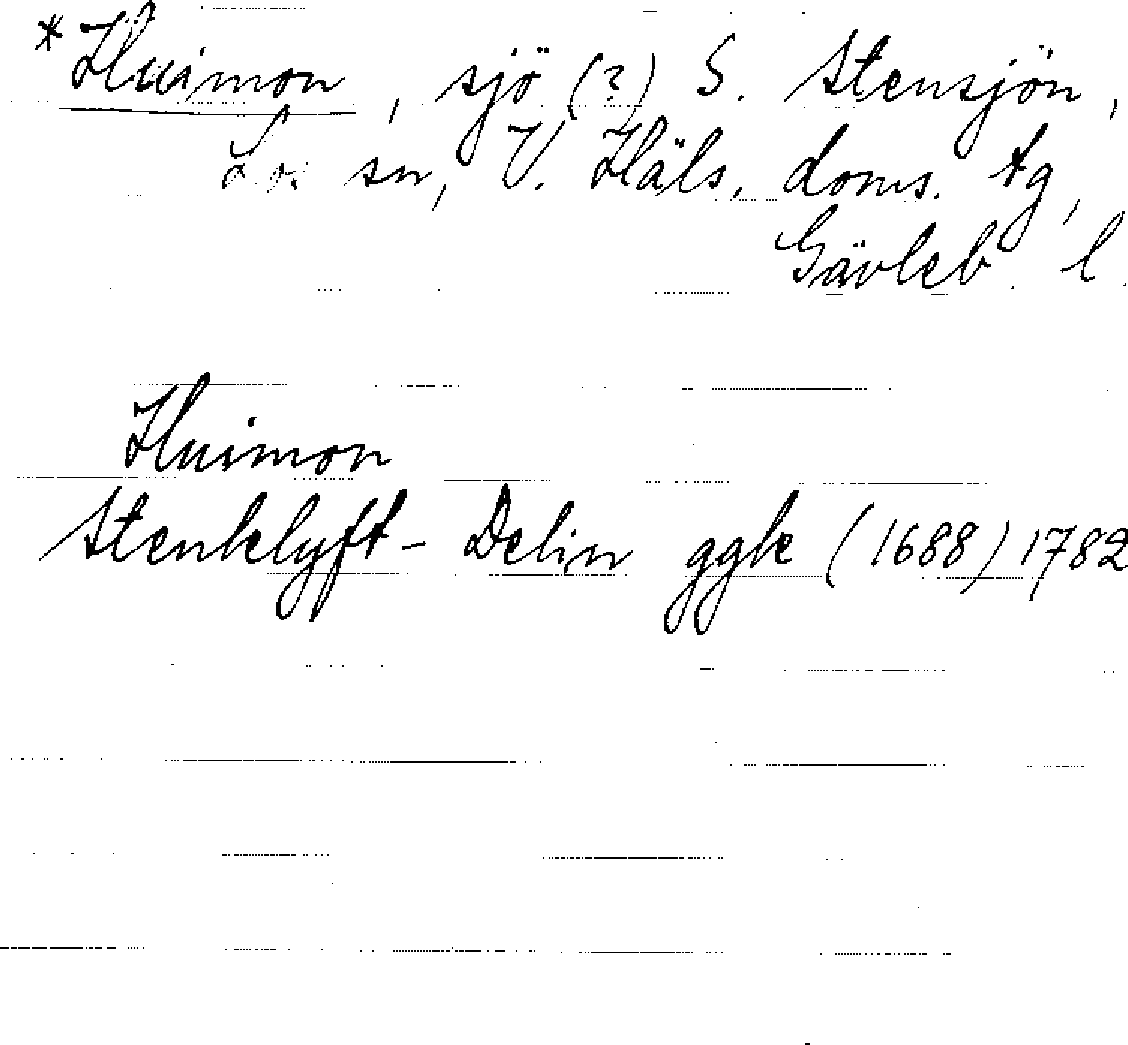 *Huimon, sjö (?) S. Stensjön,
sn, V. Häls. doms. tg,
Gävleb. l.
Huimon
Stenklyft- Delin ggk (1688) 1782